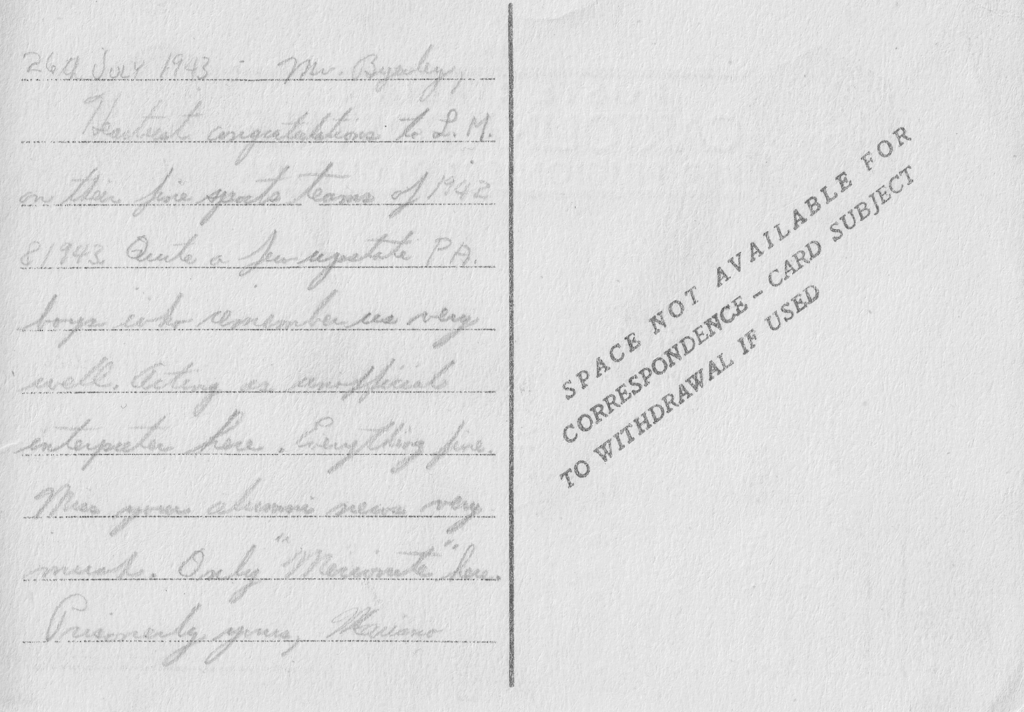 26 July 1943 : Mr. Byerley,
Heartiest congratulations to L. M.
on their fine sports teams of 1942
& 1943 Quite a few upstate PA.
boys who remember us very
well. Acting as unofficial
interpreter here. Everything fine.
Miss your alumni news very
much. Only "Merionite" here.
Prisonerly yours, Mariano
SPACE NOT AVAILABLE FOR
CORRESPONDENCE - CARD SUBJECT
TO WITHDRAWAL IF USED